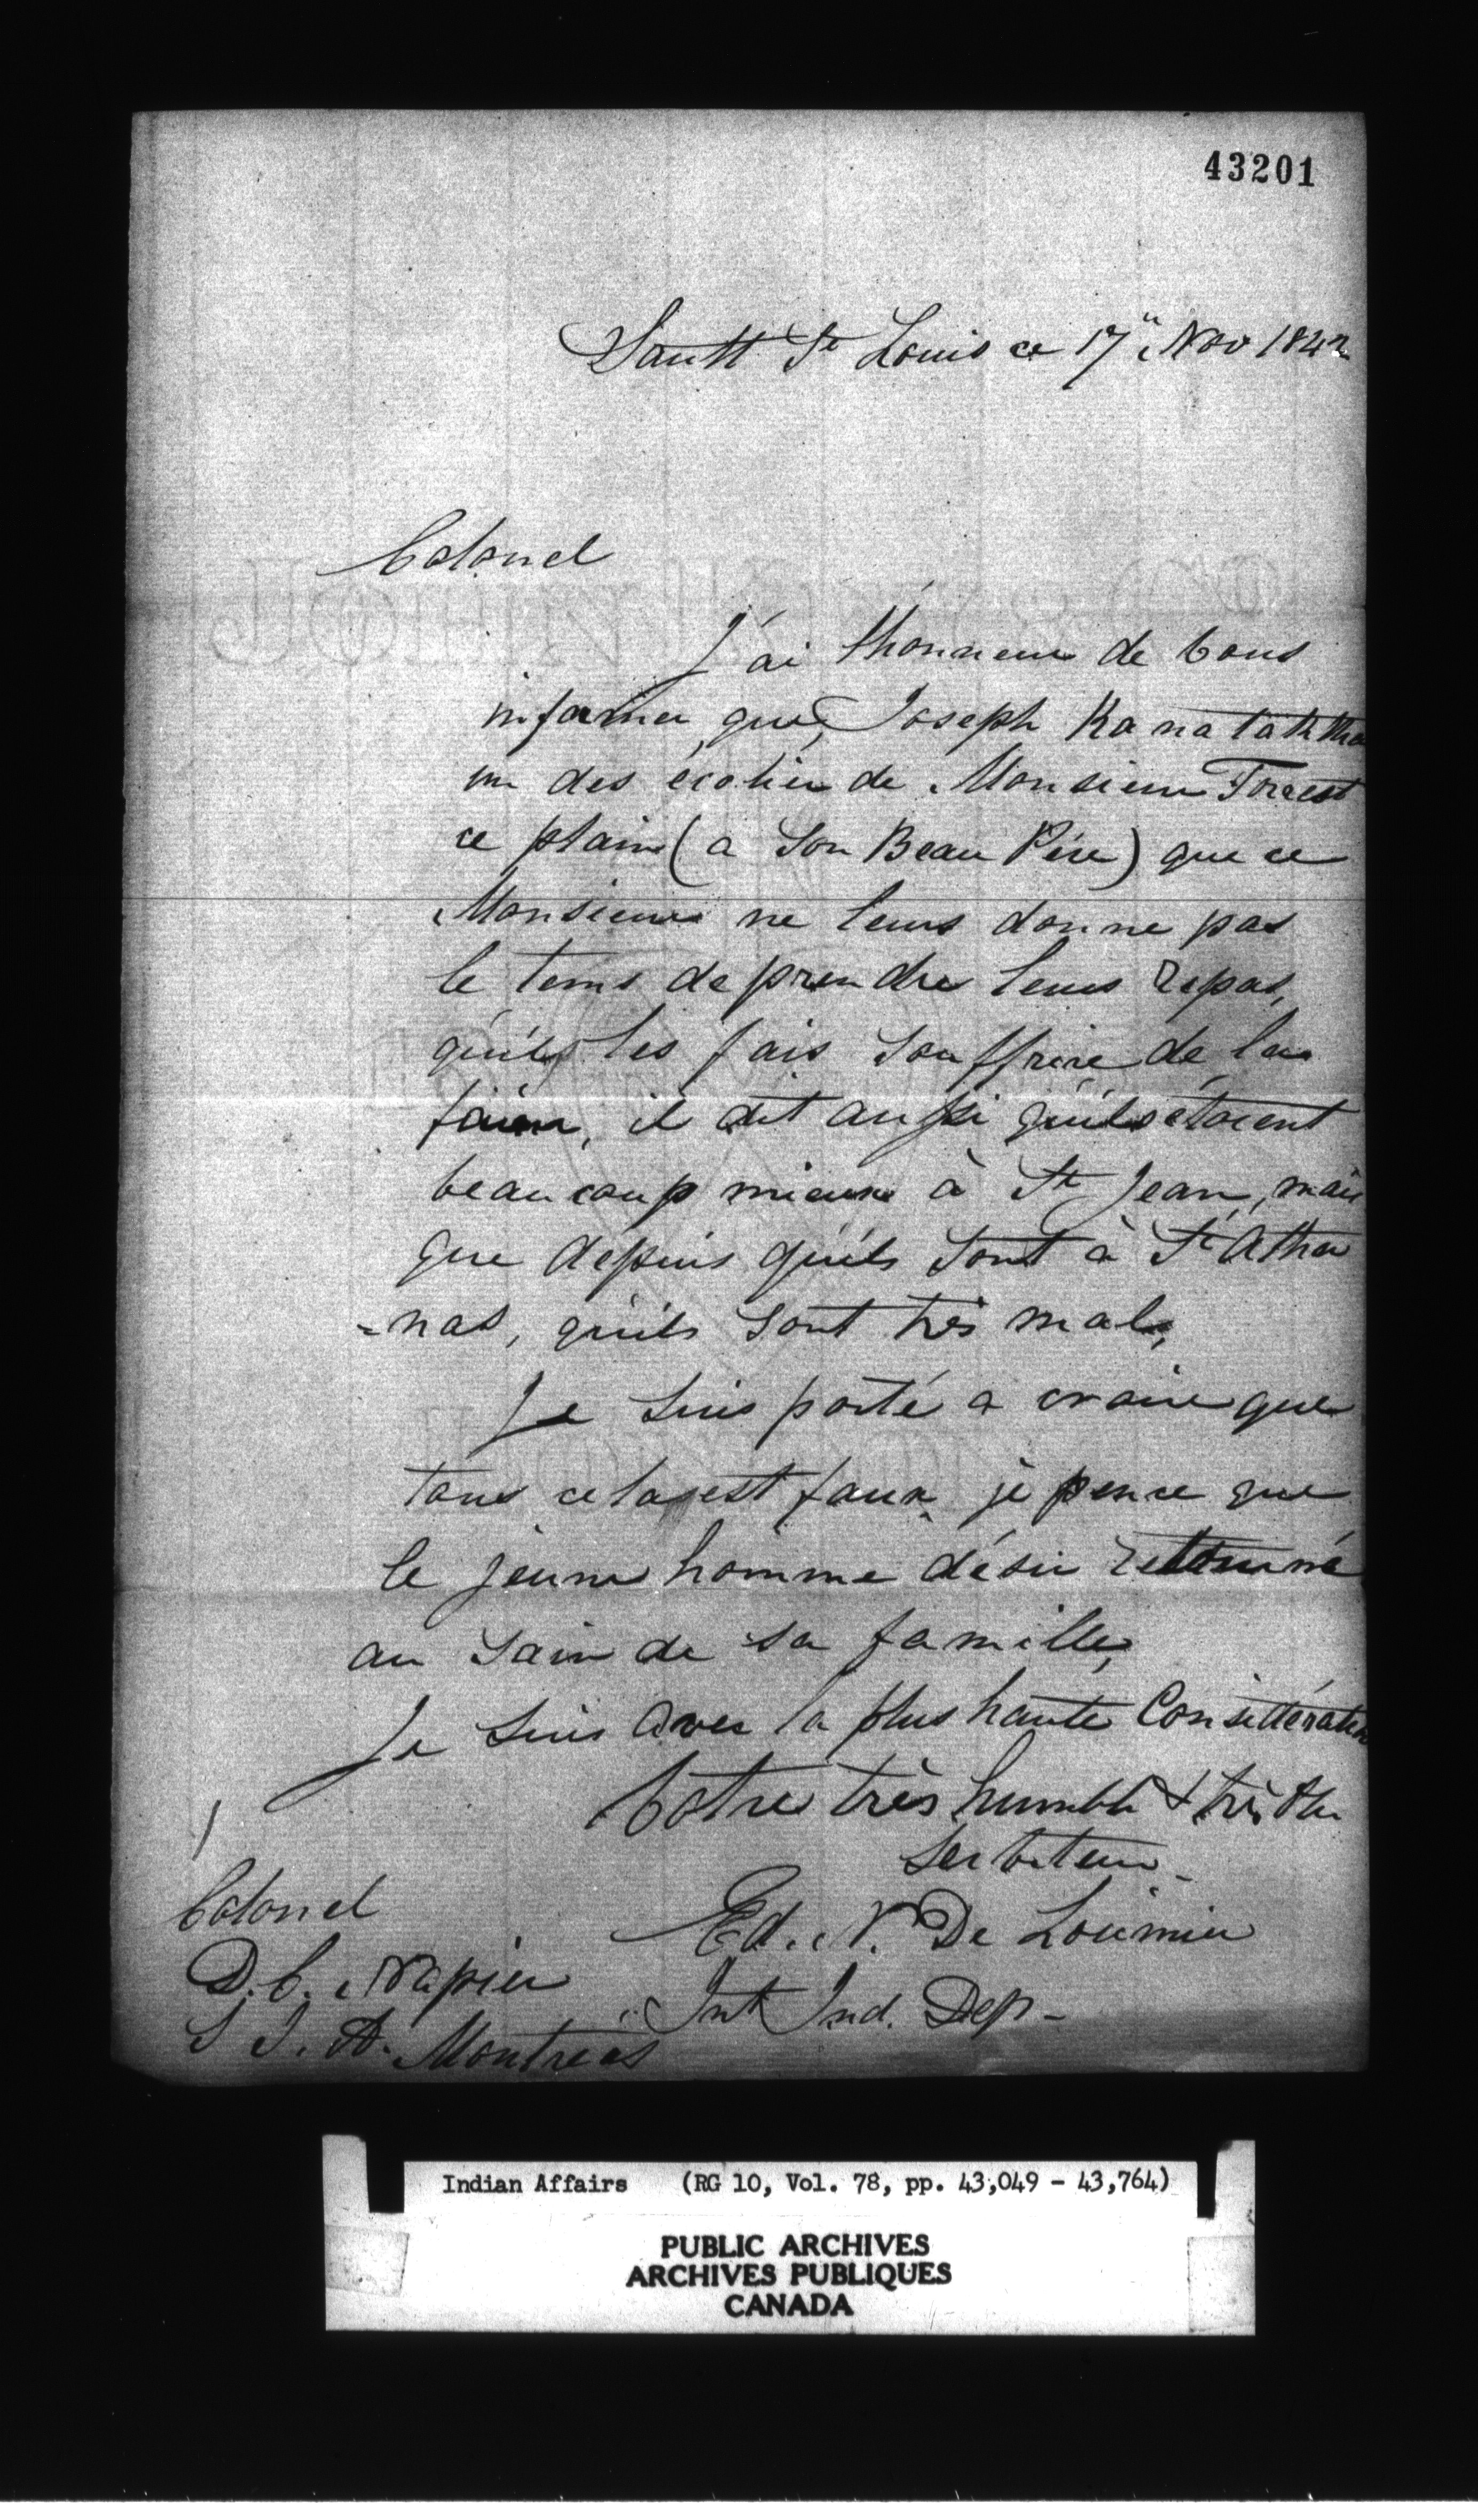 43201
Sautt St Louis ce 17" Nov 184
Colonel
J'ai l'honneur de vous
informer que Joseph Kanatattha
un des écolier de Monsieur Forrest
ce plain (a son Beau Père) que ce
Monsieur ne leurs donne pas
le tems de prendre leurs repas,
qu'ils les fais souffrire de la
faim, il dit aussi qu'ils étoient
beaucoup mieux à St Jean, mais
que depuis qu'ils sont à St Atha
=nas, qu'ils sont très mal,
Je suis porté a croire que
tous cela est faux, je pence que
le jeune homme désir retourné
au sain de sa famille,
Je suis avec la plus haute Considération
Votre très humble & très Obr
Serviteur
Ed. N. De Lorimier
Int Ind. Dep -
Colonel
D. C. Napier
S I. A. Montreal
Indian Affairs (RG 10, Vol. 78, pp. 43,049 - 43,764)
PUBLIC ARCHIVES
ARCHIVES PUBLIQUES
CANADA